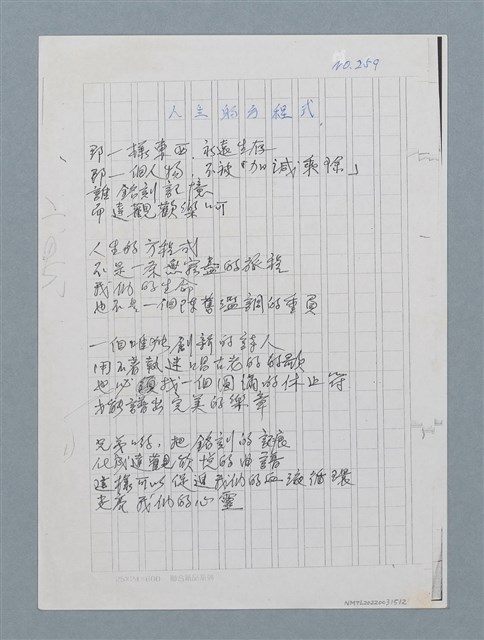 NO.259
人生的方程式
那一樣東西，永遠生存
那一個人物，不被「加減乘除」
難銘刻記憶
而達觀歡樂呵
人生的方程式
不是一条無窮盡的旅程
我們的生命
也不是一個陳舊濫調的重負
一個唯能創新的詩人
用不著執迷唱古老的的歌
也必須找一個圓滿的休止符
才能譜出完美的樂章
兄弟喲，把銘刻的記痕
化成達觀欣悅的曲譜
這樣可以促進我們的血液循環
走亮我們的心靈
NMTL20220031812